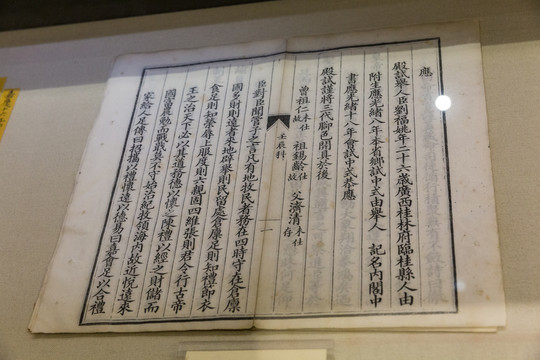 應
殿試舉人臣劉福姚年二十六歲廣西桂林府臨桂縣人由
附生應光緒八年本省鄉試中式由舉人 記名內閣中
書應光緒十八年會試中式恭應
殿試謹將三代腳色開具於後
曾祖仁未仕故 祖錫齡未仕故 父濟清未仕存
壬辰科
一
臣對臣聞管子之言凡有地牧民者務在四時守在倉廩
國多財則遠者來地辟舉則民留處倉廩足則知禮節衣
食足則知榮辱上服度則六親固四維張則君令行古帝
王之治天下必以其道務德以懷之陳禮以經之財儲而
國富農勉而戰威莫不守 海內故近悅遠來
家給人足傳曰招攜以禮懷遠以德易曰嘉會足以合禮